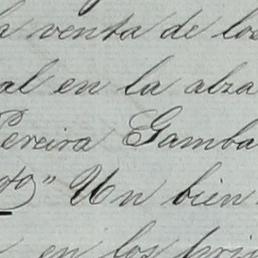 a venta de los
al en la alza
Pereira Gamba
to" Un bien
en los prin